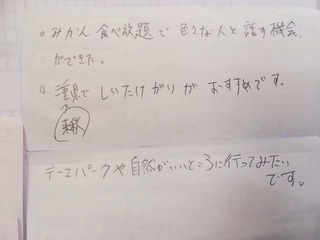 。みかん食べ放題で色々な人と話す機会
ができた。
。重県でしいたけがりがおすすめです。
テーエパークや自然がいいところに行ってみたい
です。